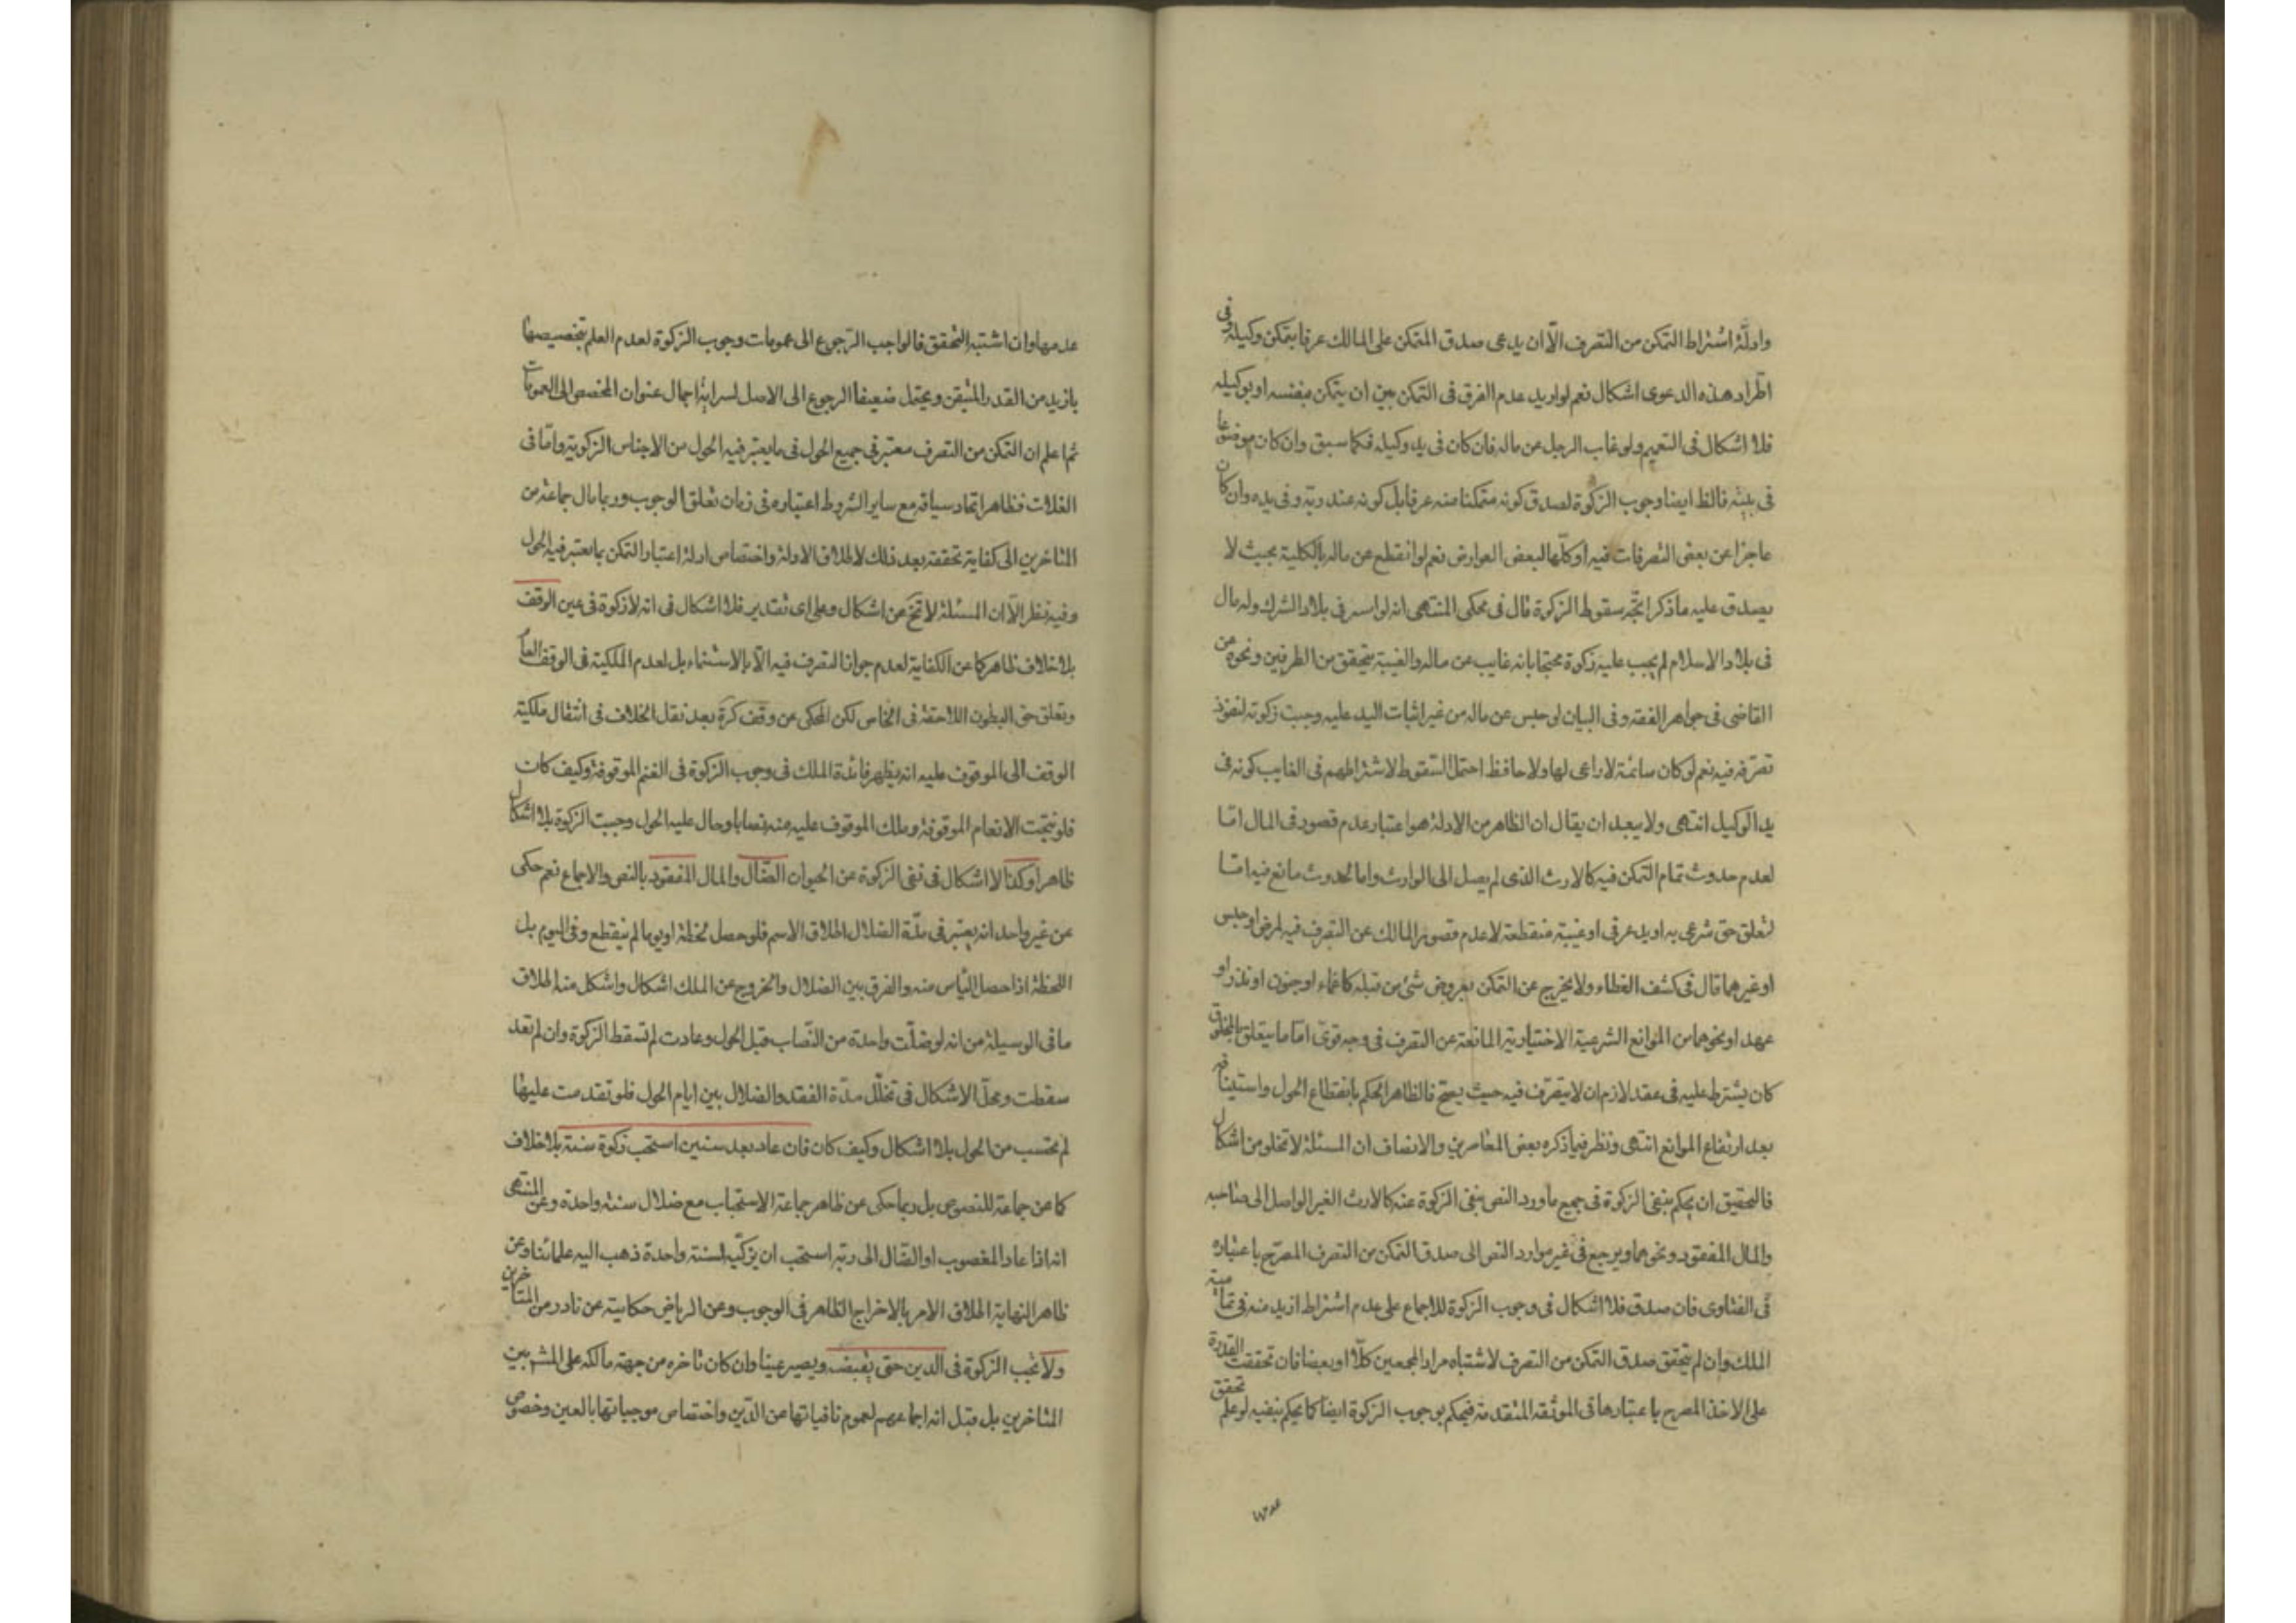 وادلّة اشتراط التمكن من التصرف الّا ان يدعى صدق المتمكن على المالك عرفا بتمكن وكيله وفى
اطّراد هذه الدعوى اشكال نعم لو اريد عدم الفرق فى التمكن بين ان يتمكن بنفسه او بوكيله
فلا اشكال فى التعميم ولو غاب الرجل عن ماله فان كان فى يد وكيله فكما سبق وان كان موضوعا
فى بيته فالظ ايضا وجوب الزكوة لصدق كونه متمكنا منه عرفا بل كونه عند ربّه وفى يده وان كان
عاجزا عن بعض التصرفات فيه او كلّها لبعض العوارض نعم لو انقطع عن ماله بالكلية بحيث لا
يصدق عليه ما ذكر اتّجه سقوط الزكوة قال فى محكى المنتهى انه لو اسر فى بلاد الشرك وله مال
فى بلاد الاسلام لم يجب عليه زكوة محتجا بانه غايب عن ماله والغيبة يتحقق من الطرفين ونحوه عن
القاضى فى جواهر الفقه وفى البيان لو حبس عن ماله من غير اثبات اليد عليه وجبت زكوته لنفوذ
تصرّفه فيه نعم لو كان سائمة لا راعى لها ولا حافظ احتمل السّقوط لاشتراطهم فى الغايب كونه فى
يد الوكيل انتهى ولا يبعد ان يقال ان الظاهر من الادلة هو اعتبار عدم قصور فى المال امّا
لعدم حدوث تمام التمكن فيه كالارث الذى لم يصل الى الوارث واما لحدوث مانع فيه امّا
لتعلق حق شرعى به او يد عرفى او غيبة منقطعة لا عدم قصور المالك عن التصرف فيه لمرض او حبس
او غيرهما قال فى كشف الغطاء ولا يخرج عن التمكن بعروض شئ من قبله كاغماء او جنون او نذر او
عهد او نحوهما من الموانع الشرعية الاختيارية المانعة عن التصرف فى وجه قوىّ امّا ما يتعلق بالمخلوق
كان يشترط عليه فى عقد لازم ان لا يتصرّف فيه حيث يصحّ فالظاهر الحكم بانقطاع الحول واستينافه
بعد ارتفاع الموانع انتهى ونظر فيما ذكره بعض المعاصرين والانصاف ان المسئلة لا تخلو من اشكال
فالتحقيق ان يحكم بنفى الزكوة فى جميع ما ورد النص بنفى الزكوة عنه كالارث الغير الواصل الى صاحبه
والمال المفقود ونحوهما ويرجع فى غير موارد النص الى صدق التمكن من التصرف المصرّح باعتباره
فى الفتاوى فان صدق فلا اشكال فى وجوب الزكوة للاجماع على عدم اشتراط ازيد منه فى تمامية
الملك وان لم يتحقق صدق التمكن من التصرف لاشتباه مراد المجمعين كلّا او بعضا فان تحققت القدرة
على الاخذ المصرح باعتبارها فى الموثقة المتقدمة فيحكم بوجوب الزكوة ايضا كما يحكم بنفيه لو علم تحقق
عدمها وان اشتبه التحقق فالواجب الرّجوع الى عمومات وجوب الزكوة لعدم العلم بتخصيصها
بازيد من القدر المتيقن ويحتمل ضعيفا الرجوع الى الاصل لسراية اجمال عنوان المخصص الى العمومات
ثم اعلم ان التمكن من التصرف معتبر فى جميع الحول فى ما يعتبر فيه الحول من الاجناس الزكوية وامّا فى
الغلات فظاهر اتحاد سياقه مع ساير الشروط اعتباره فى زمان تعلق الوجوب وربما مال جماعة من
المتاخرين الى كفاية تحققه بعد ذلك لاطلاق الادلة واختصاص ادلة اعتبار التمكن بما يعتبر فيه الحول
وفيه نظر الّا ان المسئلة لا تخ عن اشكال وعلى اى تقدير فلا اشكال فى انه لا زكوة فى عين الوقف
بلا خلاف ظاهر كما عن الكفاية لعدم جواز التصرف فيه الّا بالاستنماء بل لعدم الملكية فى الوقف العام
وتعلق حق البطون اللاحقة فى الخاص لكن المحكى عن وقف كرة بعد نقل الخلاف فى انتقال ملكية
الوقف الى الموقوف عليه انه يظهر فائدة الملك فى وجوب الزكوة فى الغنم الموقوفة وكيف كان
فلو نتجت الانعام الموقوفة وملك الموقوف عليه منه نصابا وحال عليه الحول وجبت الزكوة بلا اشكال
ظاهرا وكذا لا اشكال فى نفى الزكوة عن الحيوان الضّال والمال المفقود بالنص والاجماع نعم حكى
عن غير واحد انه يعتبر فى مدّة الضلال اطلاق الاسم فلو حصل لحظة او يوما لم ينقطع وفى اليوم بل
اللحظة اذا حصل اليأس منه والفرق بين الضلال والخروج عن الملك اشكال واشكل منه اطلاق
ما فى الوسيلة من انه لو ضلّت واحدة من النّصاب قبل الحول وعادت لم تسقط الزكوة وان لم تعد
سقطت ومحلّ الاشكال فى تخلّل مدّة الفقد والضلال بين ايام الحول فلو تقدمت عليها
لم تحتسب من الحول بلا اشكال وكيف كان فان عاد بعد سنين استحب زكوة سنة بلا خلاف
كما عن جماعة للنصوص بل ربما حكى عن ظاهر جماعة الاستحباب مع ضلال سنة واحدة وعن المنتهى
انه اذا عاد المغصوب او الضّال الى ربّه استحب ان يزكّيه لسنة واحدة ذهب اليه علمائنا وعن
ظاهر النهاية اطلاق الامر بالاخراج الظاهر فى الوجوب وعن الرياض حكايته عن نادر من المتاخرين
ولا تجب الزكوة فى الدين حتى يقبضه ويصير عينا وان كان تاخره من جهة مالكه على المشهور بين
المتاخرين بل قيل انه اجماعهم لعموم نافياتها عن الدّين واختصاص موجباتها بالعين وخصوص